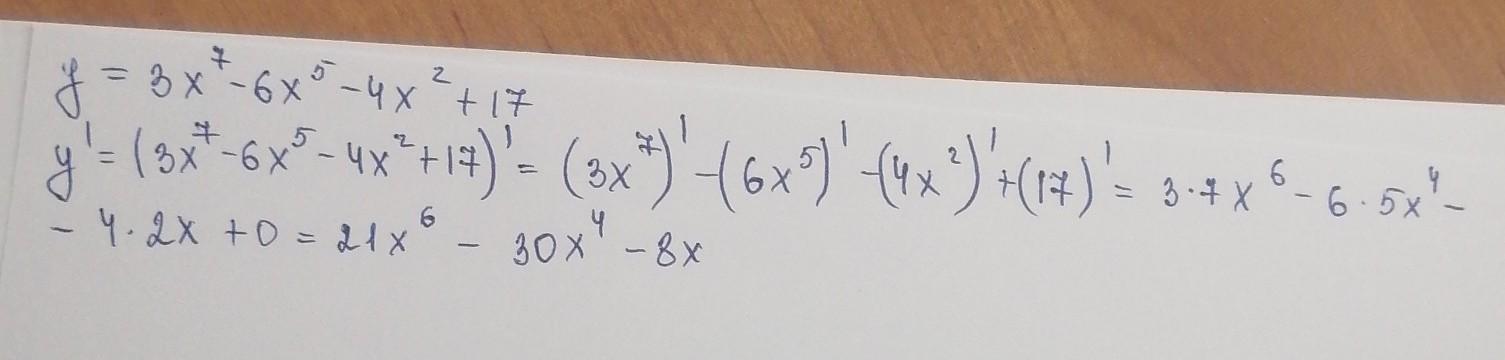 y = 3x⁷-6x⁵-4x²+17
y' = (3x⁷-6x⁵-4x²+17)' = (3x⁷)' -(6x⁵)' -(4x²)' +(17)' = 3·7x⁶ - 6·5x⁴ -
- 4·2x + 0 = 21x⁶ - 30x⁴ - 8x